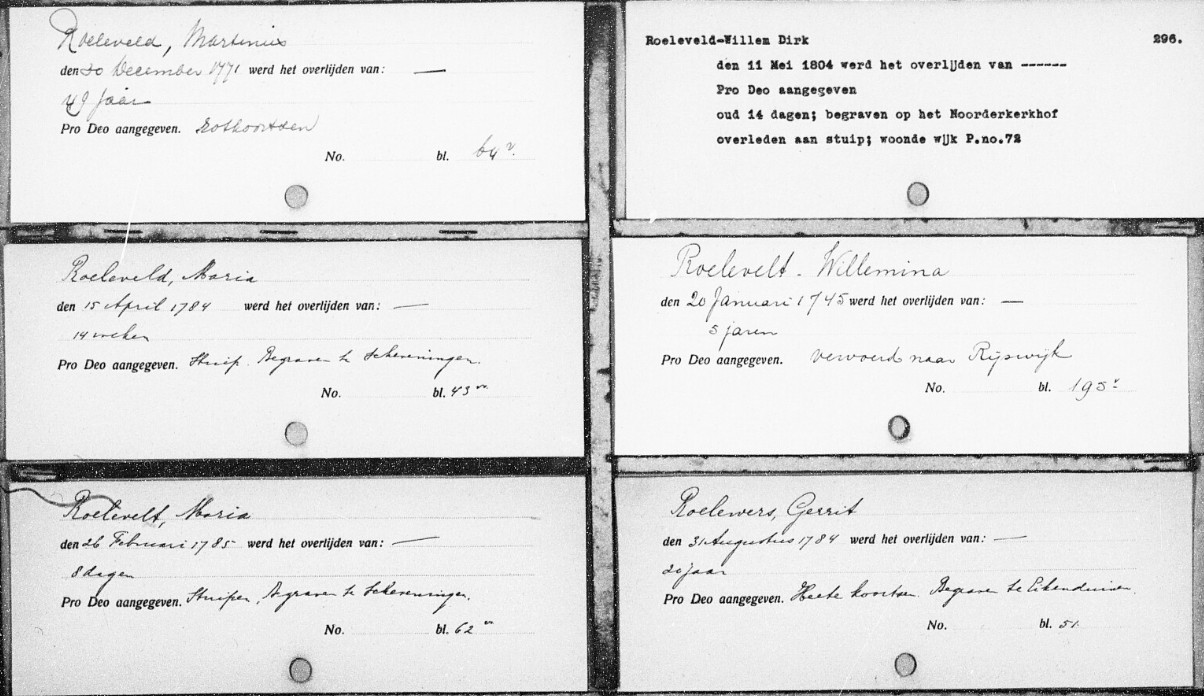 Roeleveld, Martinus
den 20 December 1771 werd het overlijden van: —
49 Jaar
Pro Deo aangegeven. Rotkoortsen
No. bl. 64 v.
Roeleveld, Maria
den 15 April 1784 werd het overlijden van: —
14 weken
Pro Deo aangegeven. Stuip. Begraven te Scheveningen.
No. bl. 43 vo
Roelevelt, Maria
den 26 Februari 1785 werd het overlijden van: —
8 dagen
Pro Deo aangegeven. Stuipen, Begraven te Scheveningen.
No. bl. 62 vo
Roeleveld-Willem Dirk 296.
den 11 Mei 1804 werd het overlijden van ------
Pro Deo aangegeven
oud 14 dagen; begraven op het Noorderkerkhof
overleden aan stuip; woonde wijk P.no.72
Roelevelt - Willemina
den 20 Januari 1745 werd het overlijden van: —
5 jaren
Pro Deo aangegeven. vervoerd naar Rijswijk
No. bl. 195 v
Roelewers, Gerrit
den 31 Augustus 1784 werd het overlijden van: —
20 jaar
Pro Deo aangegeven. Heete koortsen. Begraven te Eikenduinen.
No. bl. 51